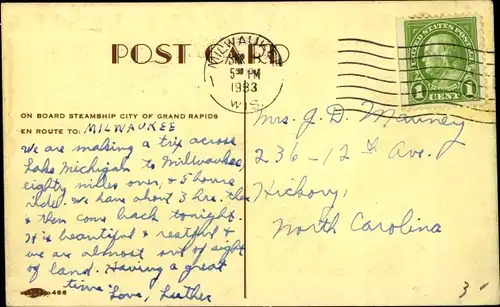 POST CARD
MILWAUKEE
5 30 PM
1933
WIS.
UNITED STATES POSTAGE
1 CENT 1
ON BOARD STEAMSHIP CITY OF GRAND RAPIDS
EN ROUTE TO: MILWAUKEE
We are making a trip across
Lake Michigan to Milwaukee,
eighty miles over, & 5 hours
ride. We have about 3 hrs. there
& then come back tonight.
It is beautiful & restful &
we are almost out of sight
of land. Having a great
time Love, Luther
466
Mrs. J. D. Mauney
236-12th Ave.
Hickory,
North Carolina
3